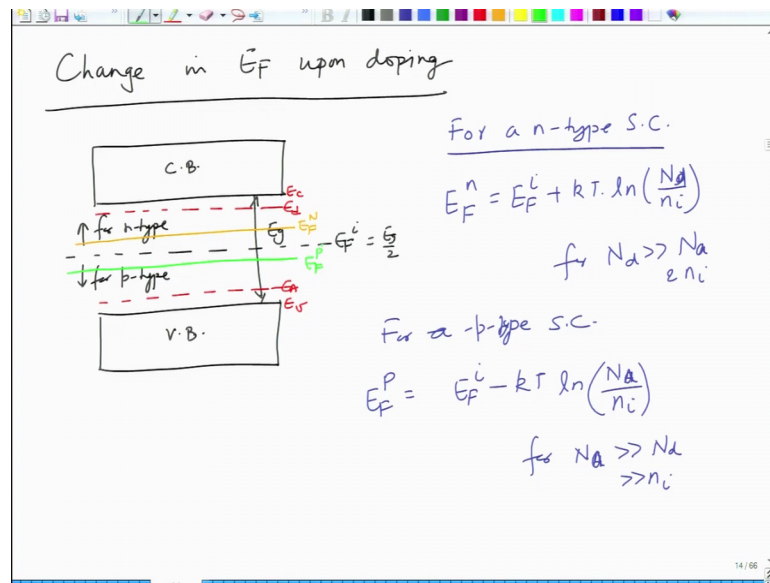 Change in EF upon doping
C.B.
Ec
Ed
↑ for n-type
EF^N
Eg
EF^i = Eg/2
↓ for p-type
EF^P
EA
Ev
V.B.
For a n-type S.C.
EF^n = EF^i + kT. ln (Nd/ni)
for Nd >> Na
& ni
For a p-type S.C.
EF^P = EF^i - kT ln (Na/ni)
for Na >> Nd
>> ni
14 / 66